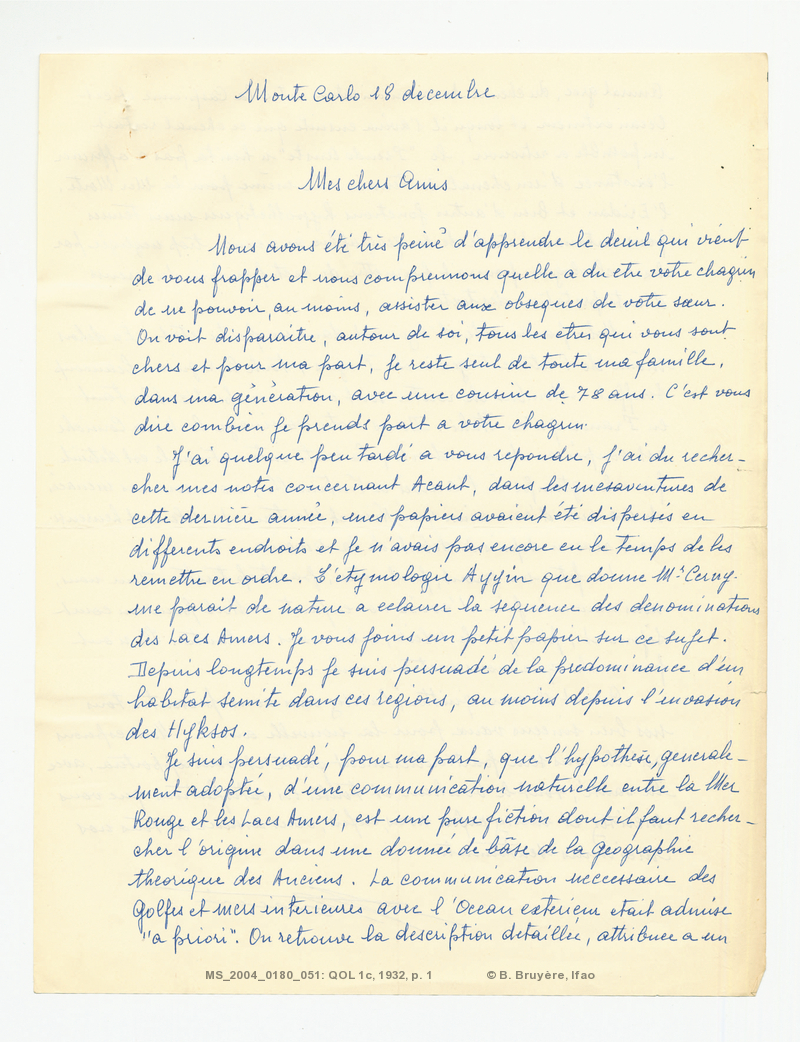 Monte Carlo 18 decembre
Mes chers Amis
Nous avons été très peiné d'apprendre le deuil qui vient
de vous frapper et nous comprennons quelle a du etre votre chagrin
de ne pouvoir, au moins, assister aux obseques de votre sœur.
On voit disparaitre, autour de soi, tous les etres qui vous sont
chers et pour ma part, je reste seul de toute ma famille,
dans ma génération, avec une cousine de 78 ans. C'est vous
dire combien je prends part a votre chagrin.
J'ai quelque peu tardé a vous repondre, j'ai du recher-
cher mes notes concernant Acant, dans les mesaventures de
cette dernière année, mes papiers avaient été dispersés en
differents endroits et je n'avais pas encore eu le temps de les
remettre en ordre. L'etymologie Ayyin que donne Mr Cerny.
me parait de nature a eclairer la sequence des denominations
des Lacs Amers. Je vous joins un petit papier sur ce sujet.
Depuis longtemps je suis persuadé de la predominance d'un
habitat semite dans ces régions, au moins depuis l'invasion
des Hyksos.
Je suis persuadé, pour ma part, que l'hypothèse, generale-
ment adoptée, d'une communication naturelle entre la Mer
Rouge et les Lacs Amers, est une pure fiction dont il faut recher-
cher l'origine dans une donnée de bâse de la geographie
theorique des Anciens. La communication neccessaire des
Golfes et mers interieures avec l'Ocean exterieur etait admise
"a priori". On retrouve la description detaillée, attribuee a un
MS_2004_0180_051: QOL 1c, 1932, p. 1 © B. Bruyère, Ifao